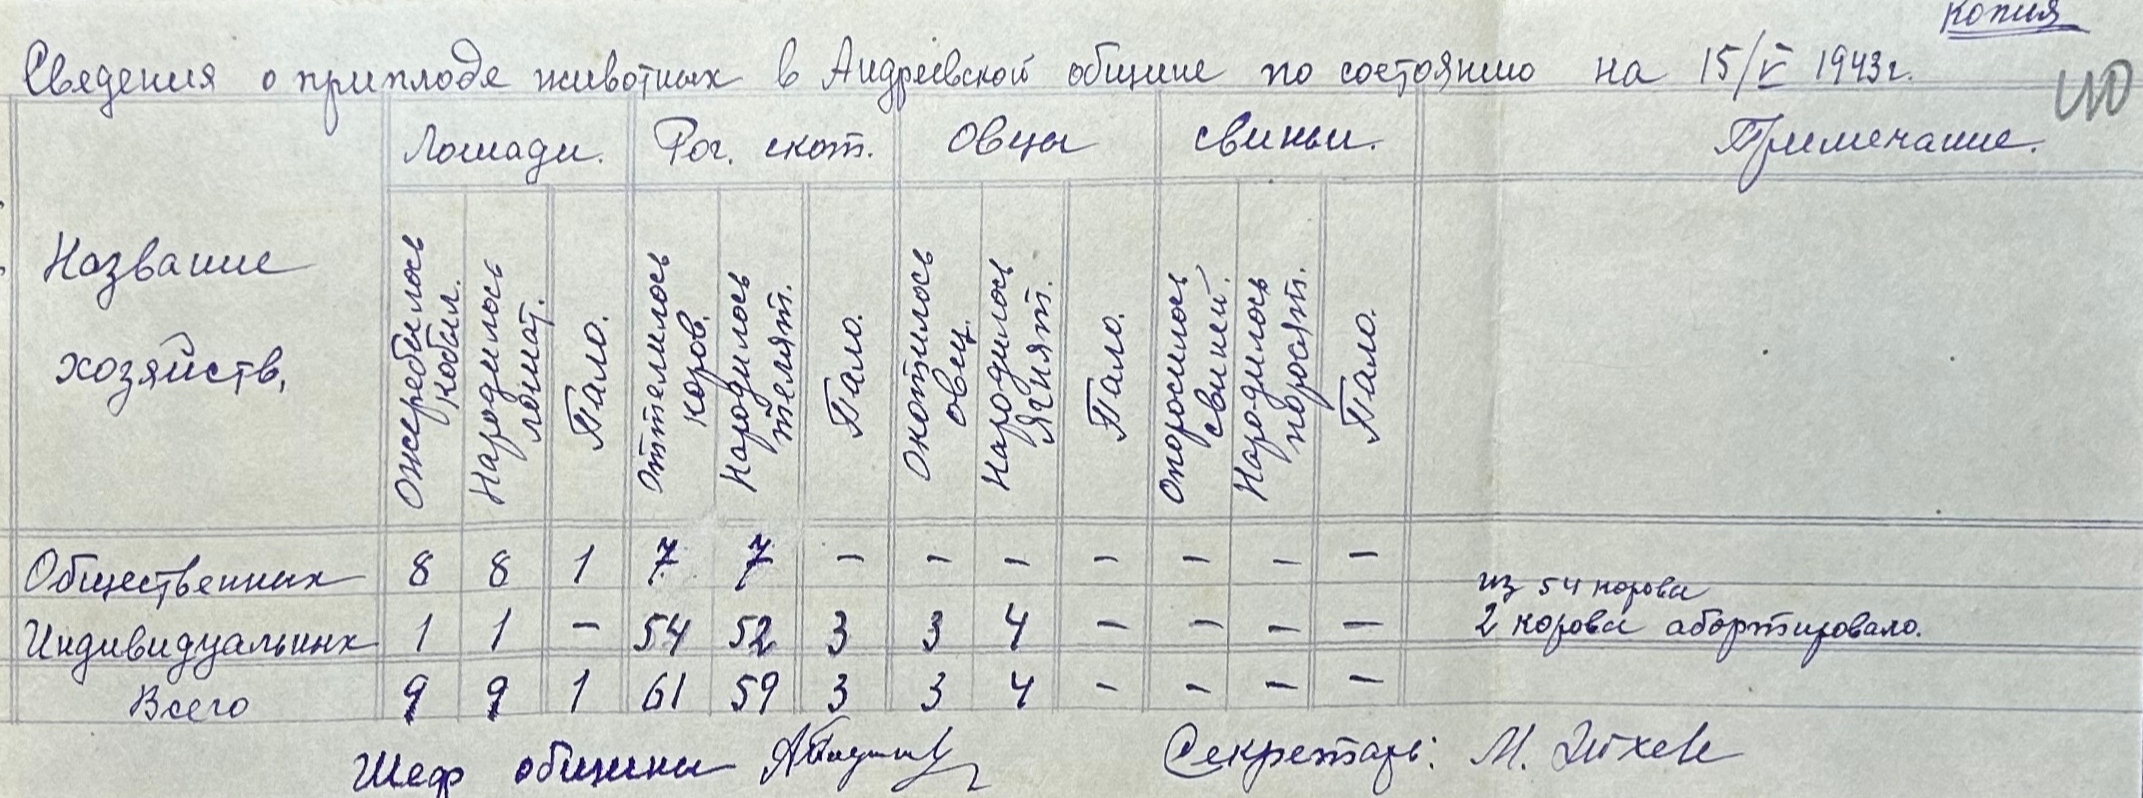 Копия
Сведения о приплоде животных в Андреевской общине по состоянию на 15/V 1943г.
Название хозяйств,
Лошади. Рог. скот. Овцы свиньи. Примечание.
Ожеребилось кобыл.
Народилось лошат.
Пало.
Оттелилось коров.
Народилось телят.
Пало.
Окотилось овец.
Народилось ягнят.
Пало.
Опоросилось свиней.
Народилось поросят.
Пало.
Общественных 8 8 1 7 7 – – – – – – –
Индивидуальных 1 1 – 54 52 3 3 4 – – – – из 54 коровы
2 коровы абортировало.
Всего 9 9 1 61 59 3 3 4 – – – –
Шеф общины Секретарь: М.